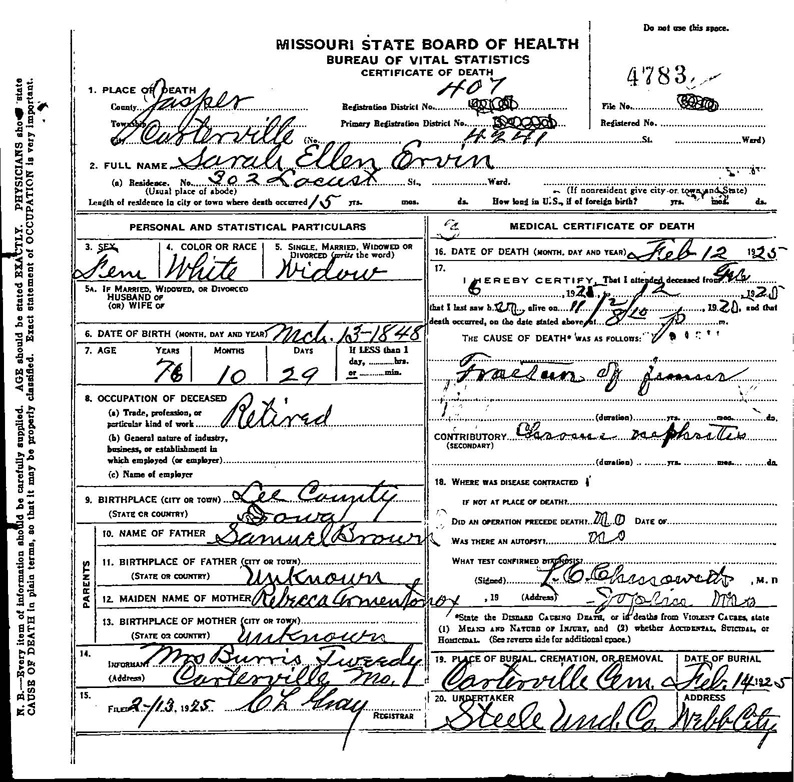 Do not use this space.
MISSOURI STATE BOARD OF HEALTH
BUREAU OF VITAL STATISTICS
CERTIFICATE OF DEATH
4783
1. PLACE OF DEATH 407
County Jasper Registration District No. File No.
Township Primary Registration District No. Registered No.
City Carterville (No. 4241 St. Ward)
2. FULL NAME Sarah Ellen Ervin
(a) Residence. No. 302 Locust St., Ward.
(Usual place of abode) (If nonresident give city or town and State)
Length of residence in city or town where death occurred 15 yrs. mos. ds. How long in U.S., if of foreign birth? yrs. mos. ds.
PERSONAL AND STATISTICAL PARTICULARS
3. SEX 4. COLOR OR RACE 5. SINGLE, MARRIED, WIDOWED OR DIVORCED (write the word)
Fem White Widow
5A. IF MARRIED, WIDOWED, OR DIVORCED
HUSBAND OF
(OR) WIFE OF
6. DATE OF BIRTH (MONTH, DAY AND YEAR) Mch. 13-1848
7. AGE YEARS MONTHS DAYS If LESS than 1 day, hrs. or min.
76 10 29
8. OCCUPATION OF DECEASED
(a) Trade, profession, or particular kind of work Retired
(b) General nature of industry, business, or establishment in which employed (or employer)
(c) Name of employer
9. BIRTHPLACE (CITY OR TOWN) Lee County
(STATE OR COUNTRY) Iowa
PARENTS
10. NAME OF FATHER Samuel Brown
11. BIRTHPLACE OF FATHER (CITY OR TOWN)
(STATE OR COUNTRY) Unknown
12. MAIDEN NAME OF MOTHER Rebecca
13. BIRTHPLACE OF MOTHER (CITY OR TOWN)
(STATE OR COUNTRY) Unknown
14.
INFORMANT Mrs Burris Tweedy
(Address) Carterville Mo.
15.
FILED 2-13, 1925 C L Gray
REGISTRAR
MEDICAL CERTIFICATE OF DEATH
16. DATE OF DEATH (MONTH, DAY AND YEAR) Feb 12 1925
17.
I HEREBY CERTIFY, That I attended deceased from Feb
6, 192 12, 1925
that I last saw h er alive on 11/12, 1925, and that
death occurred, on the date stated above, at 8/10 p m.
THE CAUSE OF DEATH* WAS AS FOLLOWS:
Fracture of femur
(duration) yrs. mos. ds.
CONTRIBUTORY Chronic nephritis
(SECONDARY)
(duration) yrs. mos. ds.
18. WHERE WAS DISEASE CONTRACTED
IF NOT AT PLACE OF DEATH?
DID AN OPERATION PRECEDE DEATH? no DATE OF
WAS THERE AN AUTOPSY? no
WHAT TEST CONFIRMED DIAGNOSIS?
(Signed) L. C. Chenoweth, M. D
, 19 (Address) Joplin Mo
*State the DISEASE CAUSING DEATH, or in deaths from VIOLENT CAUSES, state
(1) MEANS AND NATURE OF INJURY, and (2) whether ACCIDENTAL, SUICIDAL, or
HOMICIDAL. (See reverse side for additional space.)
19. PLACE OF BURIAL, CREMATION, OR REMOVAL DATE OF BURIAL
Carterville Cem. Feb 14 1925
20. UNDERTAKER ADDRESS
Steele Und. Co. Webb City
N. B.—Every item of information should be carefully supplied. AGE should be stated EXACTLY. PHYSICIANS should state
CAUSE OF DEATH in plain terms, so that it may be properly classified. Exact statement of OCCUPATION is very important.